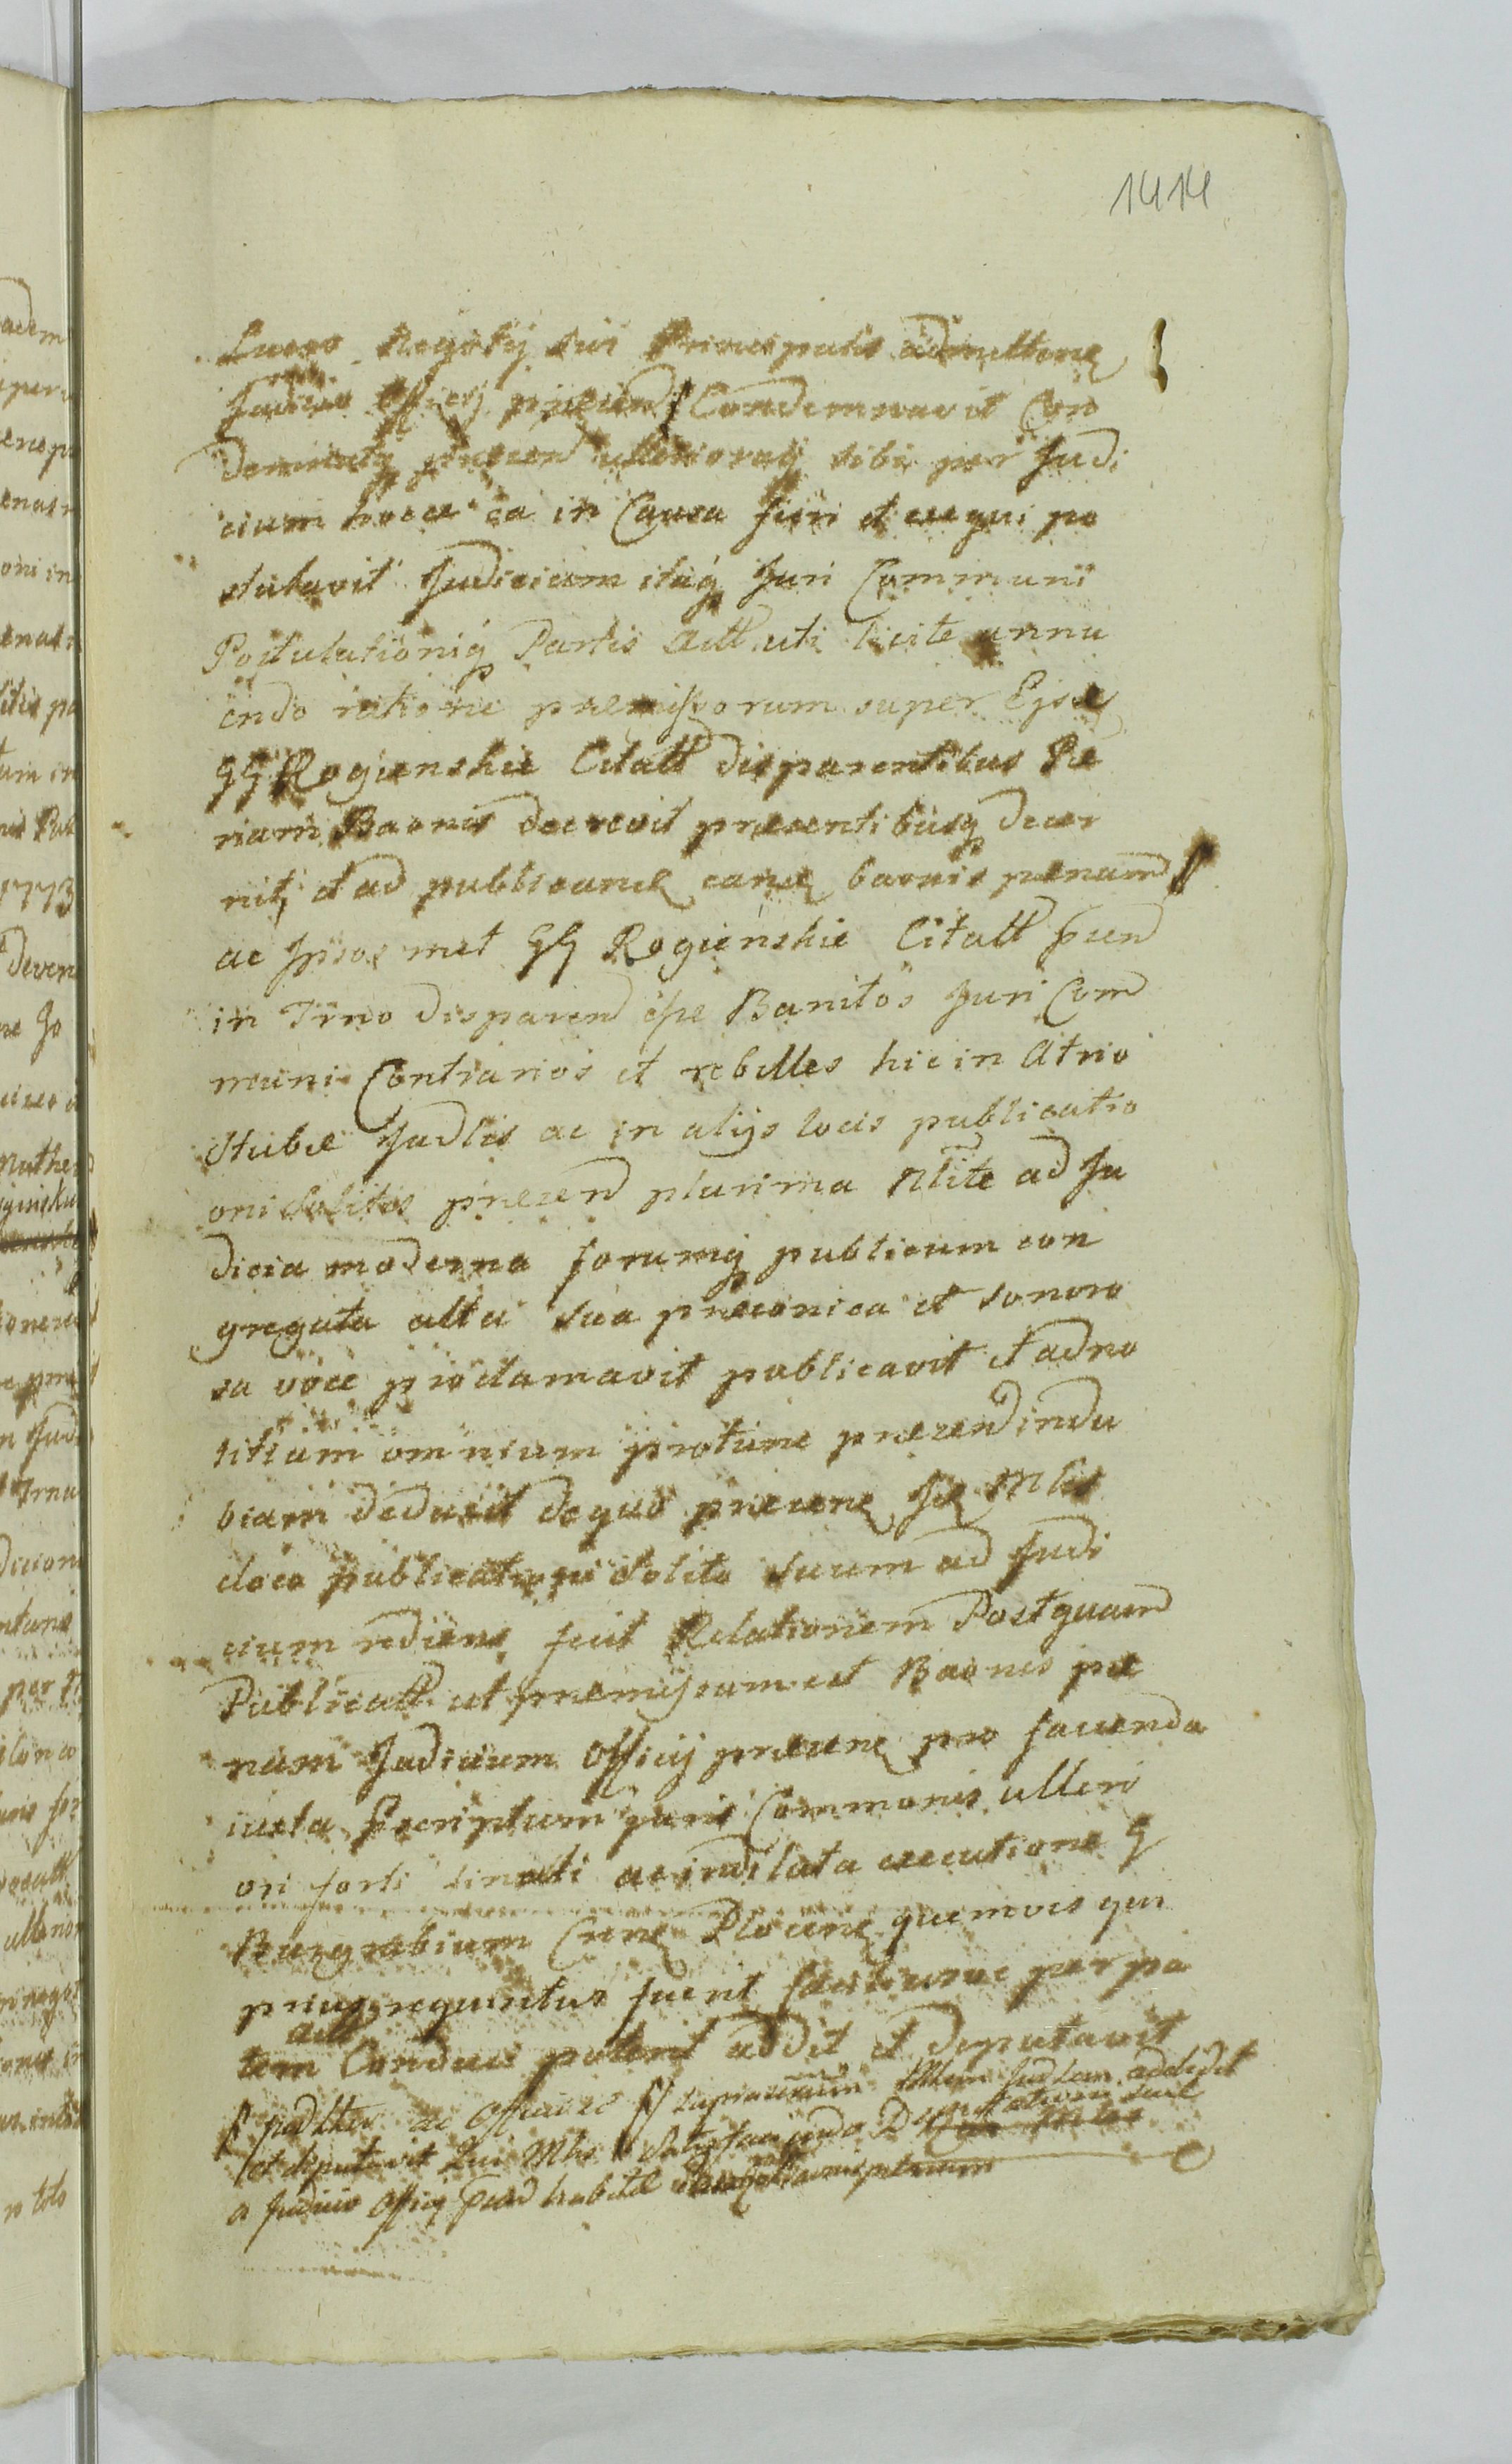 1414
Lucro Negotij sui Principalis admittens
Judicio Officij praesend Condemnavit Con
demnatq praesen ulterioraq sibi per Judi
cium hocce ea in Causa fieri et exequi po
stulavit Judicium itaq Juri Communi
Postulationiq Partis Actt uti licite annu
endo ratione praemissorum super Eisd
GG Rogienskie Citatt disparentibus Pae
nam Baonis decrevit praesentibusq decer
nit, et ad publicand eand baonis paenam
ac Ipsos met GG Rogienskie Citatt praen
in Trno disparen esse Banitos Juri Com
muni Contrarios et rebelles hic in Atrio
Stubae Judlis ac in alijs locis publicatio
oni solitis praesen plurima Nlite ad Ju
dicia moderna forumq publicum con
gregata alta sua praeconica et sonoro
sa voce proclamavit publicavit et ad no
titiam omnium protunc praesen indu
biam deduxit de quo praesens Mlis
loco publicationi solito suum ad Judi
cium rediens fecit Relationem Postquam
Publicatt ut praemissum est Baonis pae
nam Judicium Officij praesens pro facienda
iuxta praescriptum Juris Communis ulteri
ori forti simili ac indilata executione G
Burgrabium Crens Plocens quemvis qui
prius requisitus fuerit facit per pa
actt
tem Conduci poterit addit et deputavit
Judlter ac Officiose supra Mlem Judlem addidit
et deputavit Qui Mlis satisfaciendo Deputationi suae
a Judicio Officij praed habitae